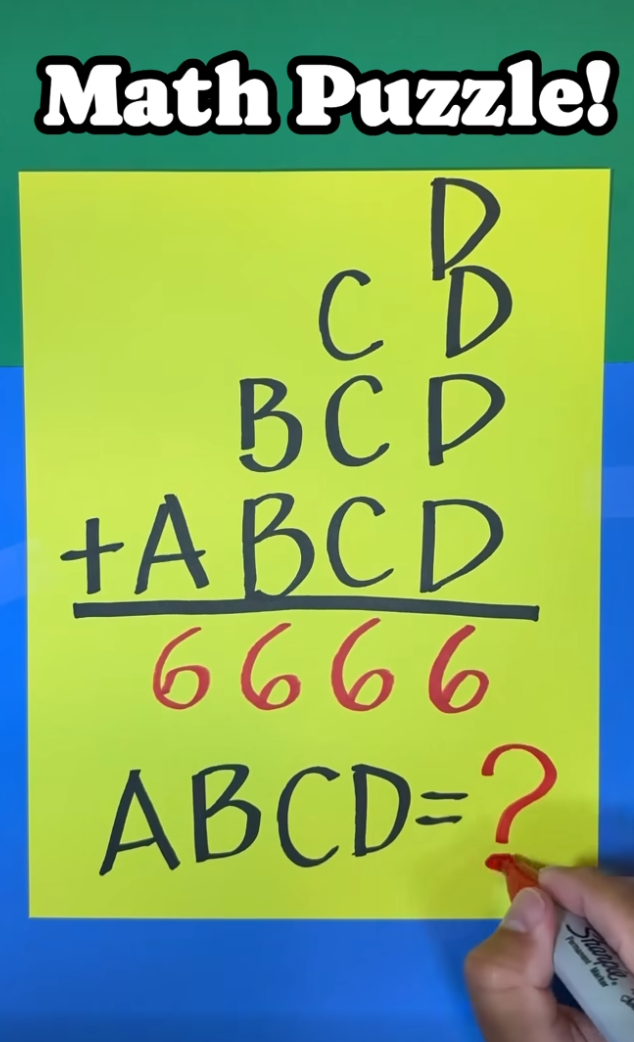 Math Puzzle!
D
C D
B C D
+ A B C D
6 6 6 6
ABCD=?
Sharpie
Permanent Marker